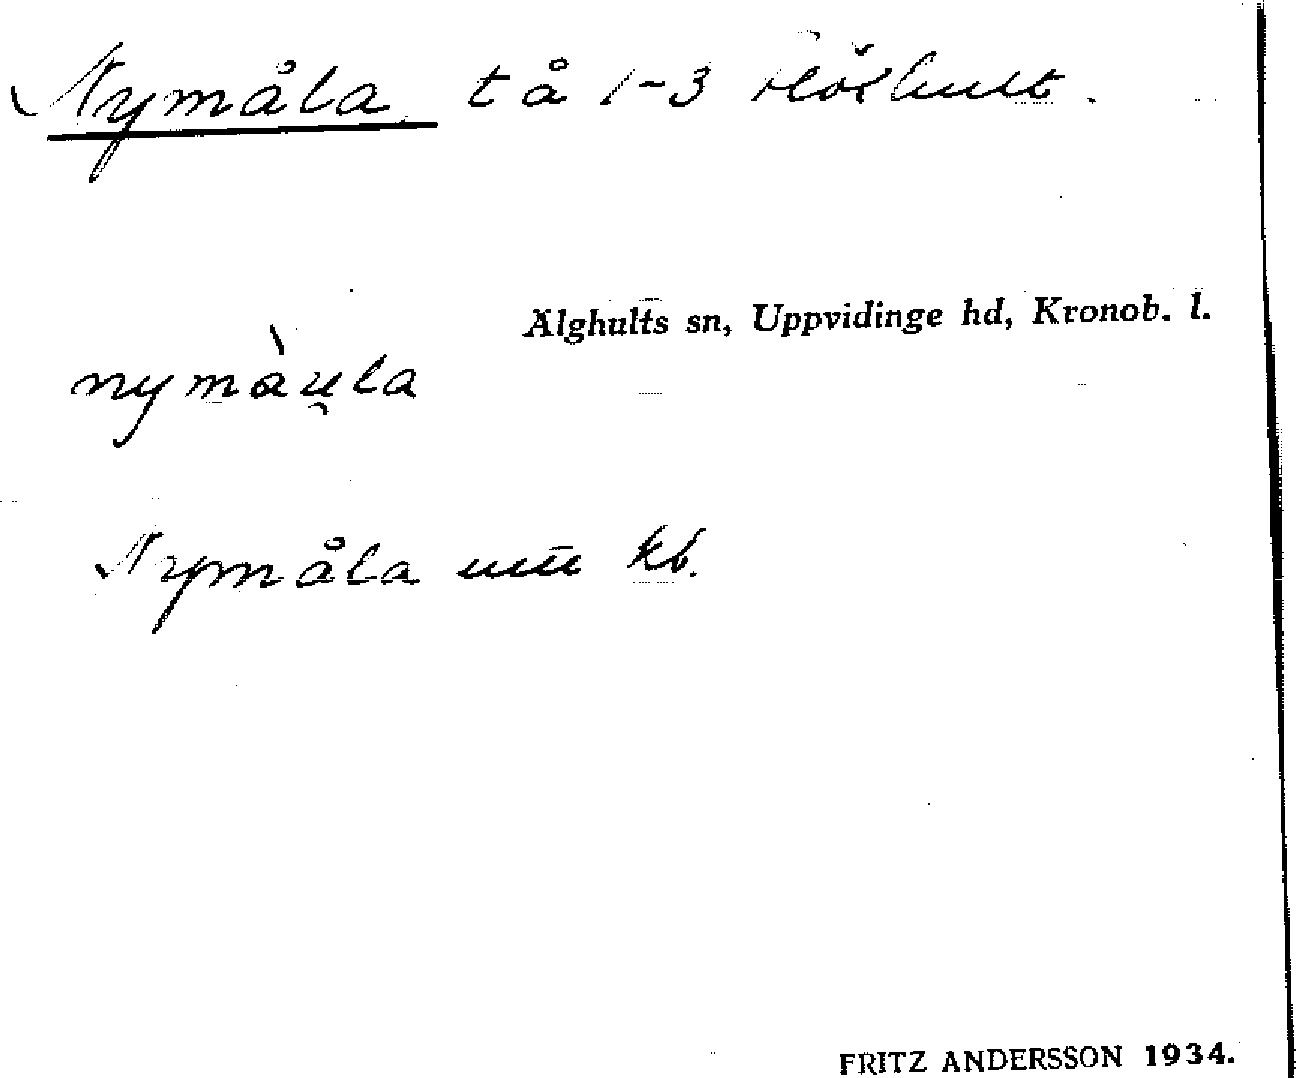 Nymåla tå 1-3 Klöxhult.
Älghults sn, Uppvidinge hd, Kronob. l.
nymàu̯la
Nymåla kb.
FRITZ ANDERSSON 1934.